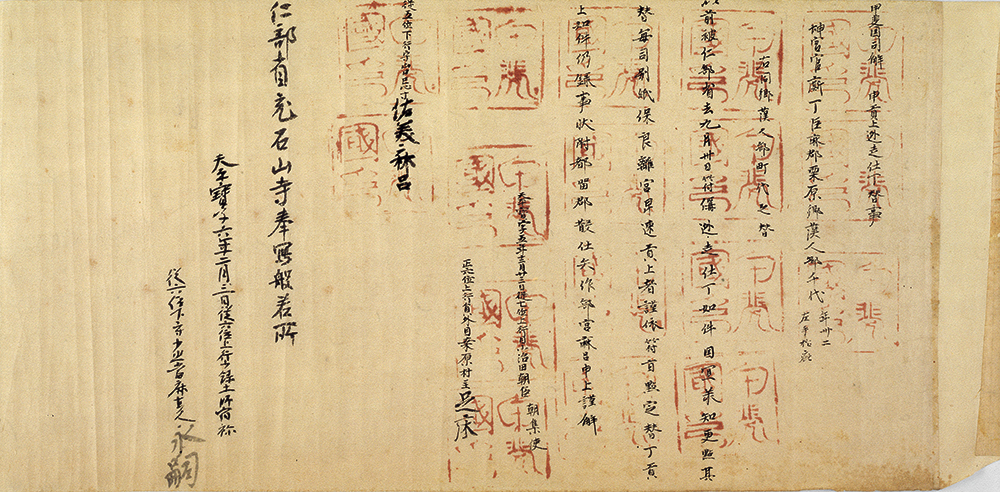 甲斐国司解 申貢上逃走仕丁替事
坤宮官廝丁巨麻郡栗原郷漢人部千代 年卅二 左手疵
右同郷漢人部町代之替
以前被仁部省去九月卅日符偁逃走仕丁如件国宜承知更点其
替毎司別紙保良離宮早速貢上者謹依符旨点定替丁貢
上如件仍録事状附都留郡散仕矢作部宮麻呂申上謹解
天平宝字五年十二月廿三日従七位上行目小治田朝臣 朝集使
正六位上行員外目桑原村主足床
従五位下行守
仁部省充石山寺奉写般若所
天平寶字六年二月三日従六位上行少録土師宿祢
従六位下守少丞当麻真人永嗣